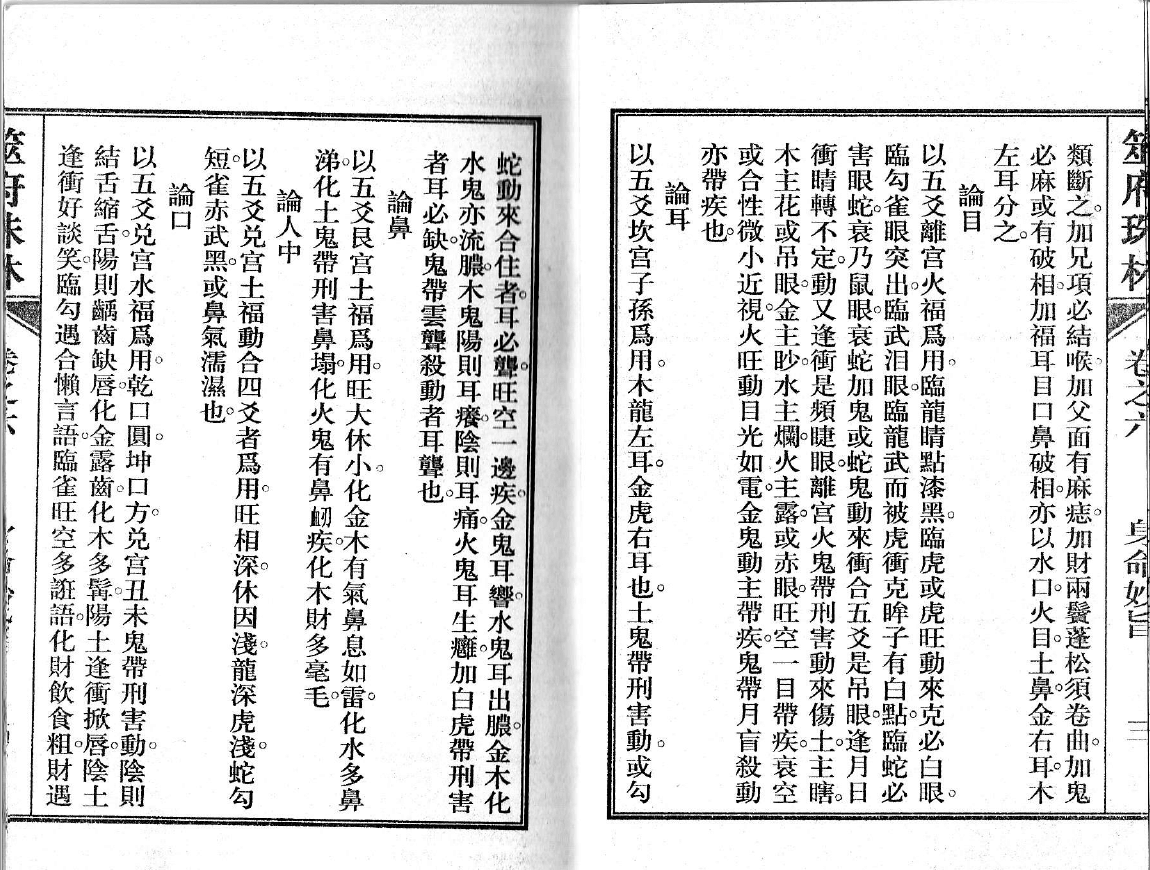 筮府珠林
卷之六
身命妙旨
三
類斷之。加兄項必結喉。加父面有麻痣。加財兩鬢蓬松須卷曲。加鬼
必麻或有破相。加福耳目口鼻破相。亦以水口。火目。土鼻。金右耳。木
左耳分之。
論目
以五爻離宮火福爲用。臨龍睛點漆黑。臨虎或虎旺動來克必白眼。
臨勾雀眼突出。臨武泪眼。臨龍武而被虎衝克眸子有白點。臨蛇必
害眼。蛇衰乃鼠眼。衰蛇加鬼或蛇鬼動來衝合五爻是吊眼。逢月日
衝睛轉不定。動又逢衝是頻睫眼。離宮火鬼帶刑害動來傷土。主瞎。
木主花或吊眼。金主眇。水主爛。火主露或赤眼。旺空一目帶疾。衰空
或合性微小近視。火旺動目光如電。金鬼動主帶疾。鬼帶月盲殺動
亦帶疾也。
論耳
以五爻坎宮子孫爲用。木龍左耳。金虎右耳也。土鬼帶刑害動。或勾
蛇動來合住者。耳必聾。旺空一邊疾。金鬼耳響。水鬼耳出膿。金木化
水鬼亦流膿。木鬼陽則耳癢。陰則耳痛。火鬼耳生癰。加白虎帶刑害
者耳必缺。鬼帶雲聾殺動者耳聾也。
論鼻
以五爻艮宮土福爲用。旺大休小。化金木有氣鼻息如雷。化水多鼻
涕。化土鬼帶刑害鼻塌。化火鬼有鼻衄疾。化木財多毫毛。
論人中
以五爻兑宮土福動合四爻者爲用。旺相深。休因淺。龍深虎淺。蛇勾
短。雀赤武黑。或鼻氣濡濕也。
論口
以五爻兑宮水福爲用。乾口圓。坤口方。兑宮丑未鬼帶刑害動。陰則
結舌縮舌。陽則齲齒缺唇。化金露齒。化木多髯。陽土逢衝掀唇。陰土
逢衝好談笑。臨勾遇合懶言語。臨雀旺空多誑語。化財飲食粗。財遇
筮府珠林
卷之六